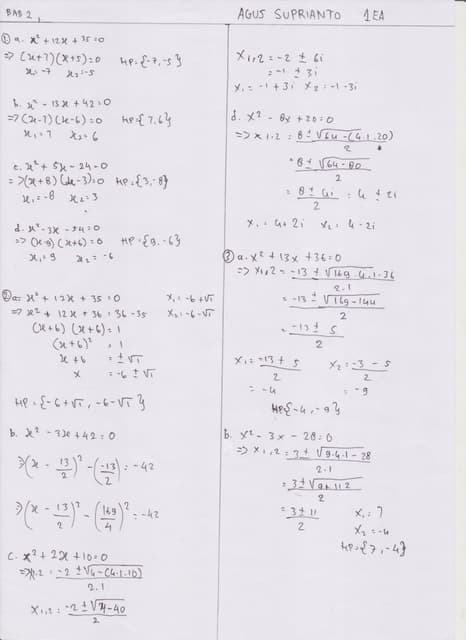 BAB 2,
AGUS SUPRIANTO 1EA
① a. x² + 12x + 35 = 0
⇒ (x+7) (x+5) = 0 HP = {-7, -5}
x₁ = -7 x₂ = -5
b. x² - 13x + 42 = 0
⇒ (x-7) (x-6) = 0 HP = {7,6}
x₁ = 7 x₂ = 6
c. x² + 5x - 24 = 0
⇒ (x+8) (x-3) = 0 HP = {3, -8}
x₁ = -8 x₂ = 3
d. x² - 3x - 54 = 0
⇒ (x-9) (x+6) = 0 HP = {9, -6}
x₁ = 9 x₂ = -6
② a. x² + 12x + 35 = 0 x₁ = -6 + √1
⇒ x² + 12x + 36 = 36 - 35 x₂ = -6 - √1
(x+6) (x+6) = 1
(x+6)² = 1
x+6 = ± √1
x = -6 ± √1
HP = {-6 + √1, -6 - √1}
b. x² - 3x + 42 = 0
⇒ (x - 13/2)² - (-13/2)² = -42
⇒ (x - 13/2)² - (169/4)² = -42
c. x² + 2x + 10 = 0
⇒ x1.2 = -2 ± √4 - (4.1.10) / 2.1
x1,2 = -2 ± √4 - 40 / 2
x1,2 = -2 ± 6i
= -1 ± 3i
x₁ = -1 + 3i x₂ = -1 - 3i
d. x² - 8x + 20 = 0
⇒ x1.2 = 8 ± √64 - (4.1.20) / 2
= 8 ± √64 - 80 / 2
= 8 ± 4i / 2 = 4 ± 2i
x₁ = 4 + 2i x₂ = 4 - 2i
③ a. x² + 13x + 36 = 0
⇒ x1,2 = -13 ± √169 - 4.1.36 / 2.1
= -13 ± √169 - 144 / 2
= -13 ± 5 / 2
x₁ = -13 + 5 / 2 x₂ = -3 - 5 / 2
= -4 = -9
HP {-4, -9}
b. x² - 3x - 28 = 0
⇒ x1,2 = 3 ± √9 - 4.1 - 28 / 2.1
= 3 ± √9 + 112 / 2
= 3 ± 11 / 2 x₁ = 7
x₂ = -4
HP = {7, -4}